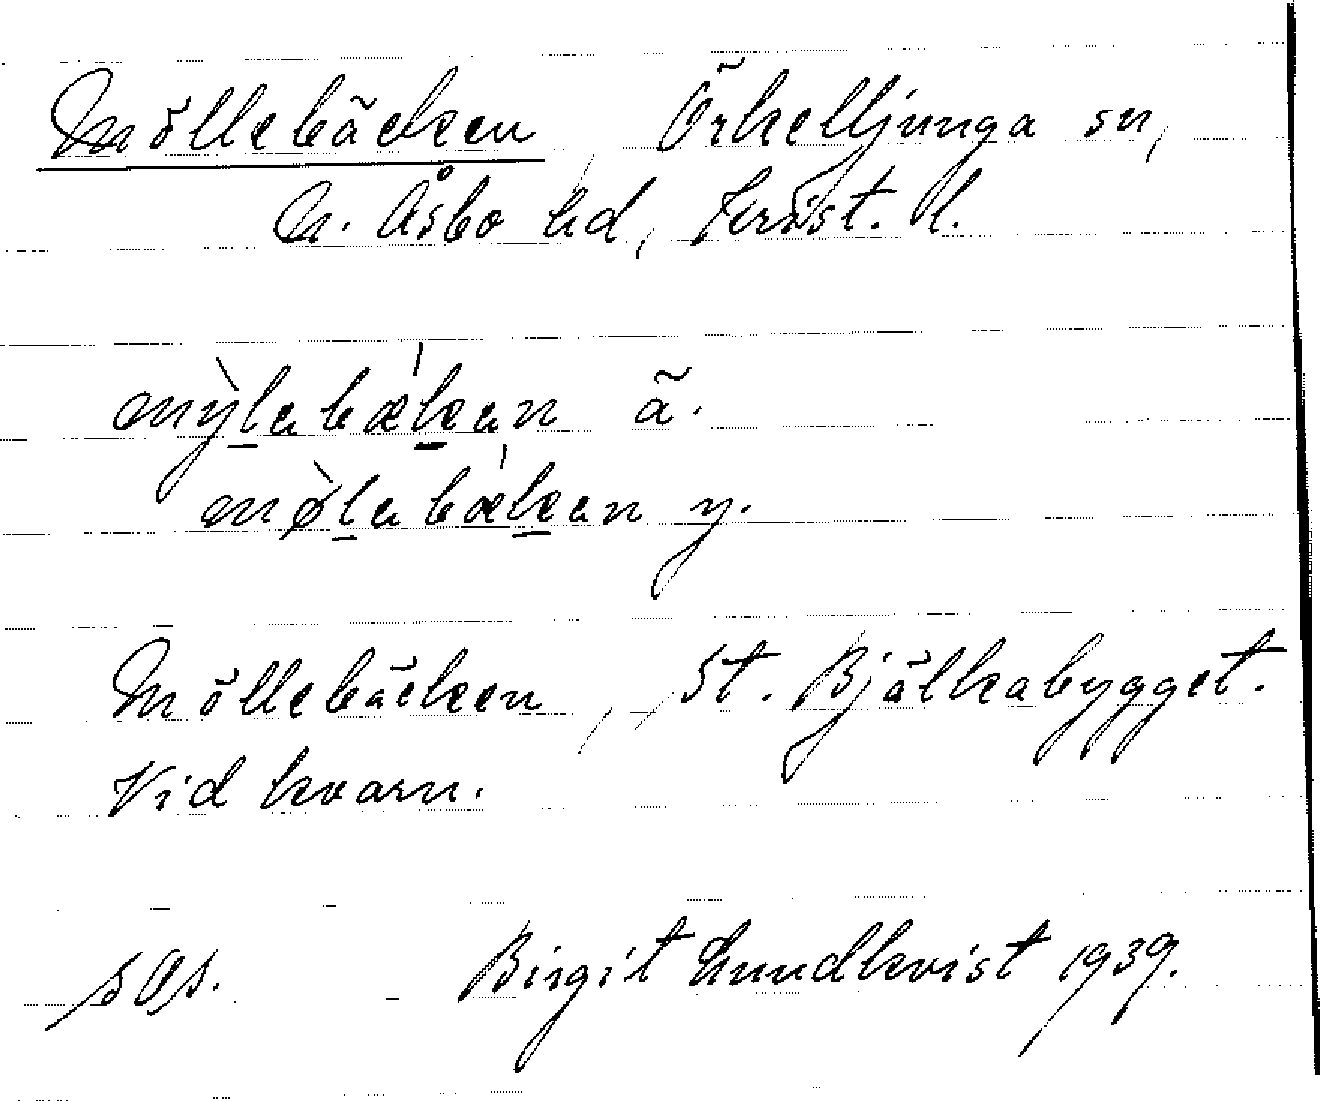 Möllebäcken, Örkelljunga sn,
N. Åsbo hd, Krist. l.
mỳlabækan ä.
mø̀labækan y.
Möllebäcken, St. Bjälkabygget.
Vid kvarn.
Birgit Lundkvist 1939.